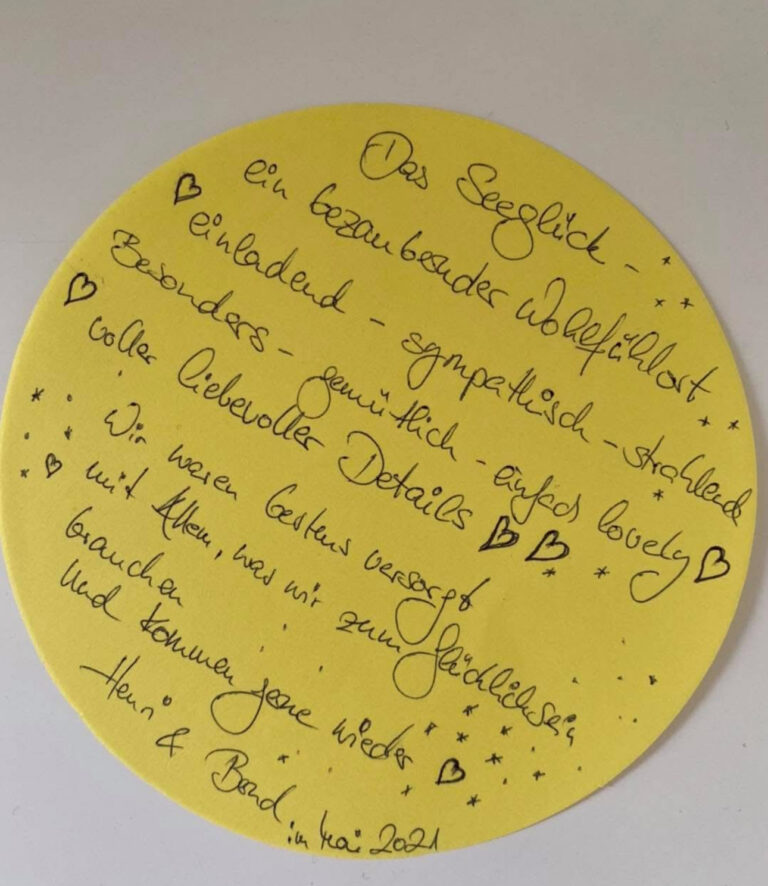 Das Seeglück -
ein bezaubernder Wohlfühlort
einladend - sympathisch - strahlend
Besonders - gemütlich - einfach lovely
voller liebevoller Details
Wir waren bestens versorgt
mit Allem, was wir zum Glücklichsein
brauchen
Und kommen gerne wieder
Henri
& Bernd
im Mai 2021